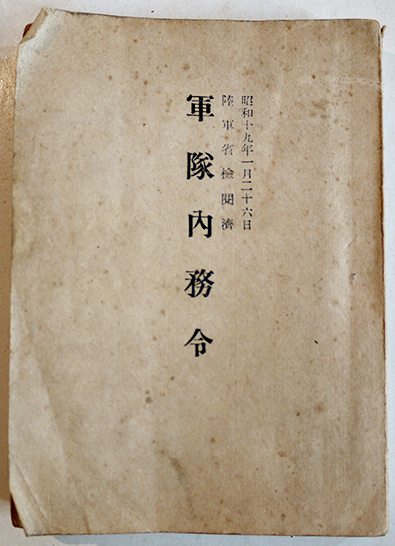 昭和十九年一月二十六日
陸軍省檢閲濟
軍隊內務令